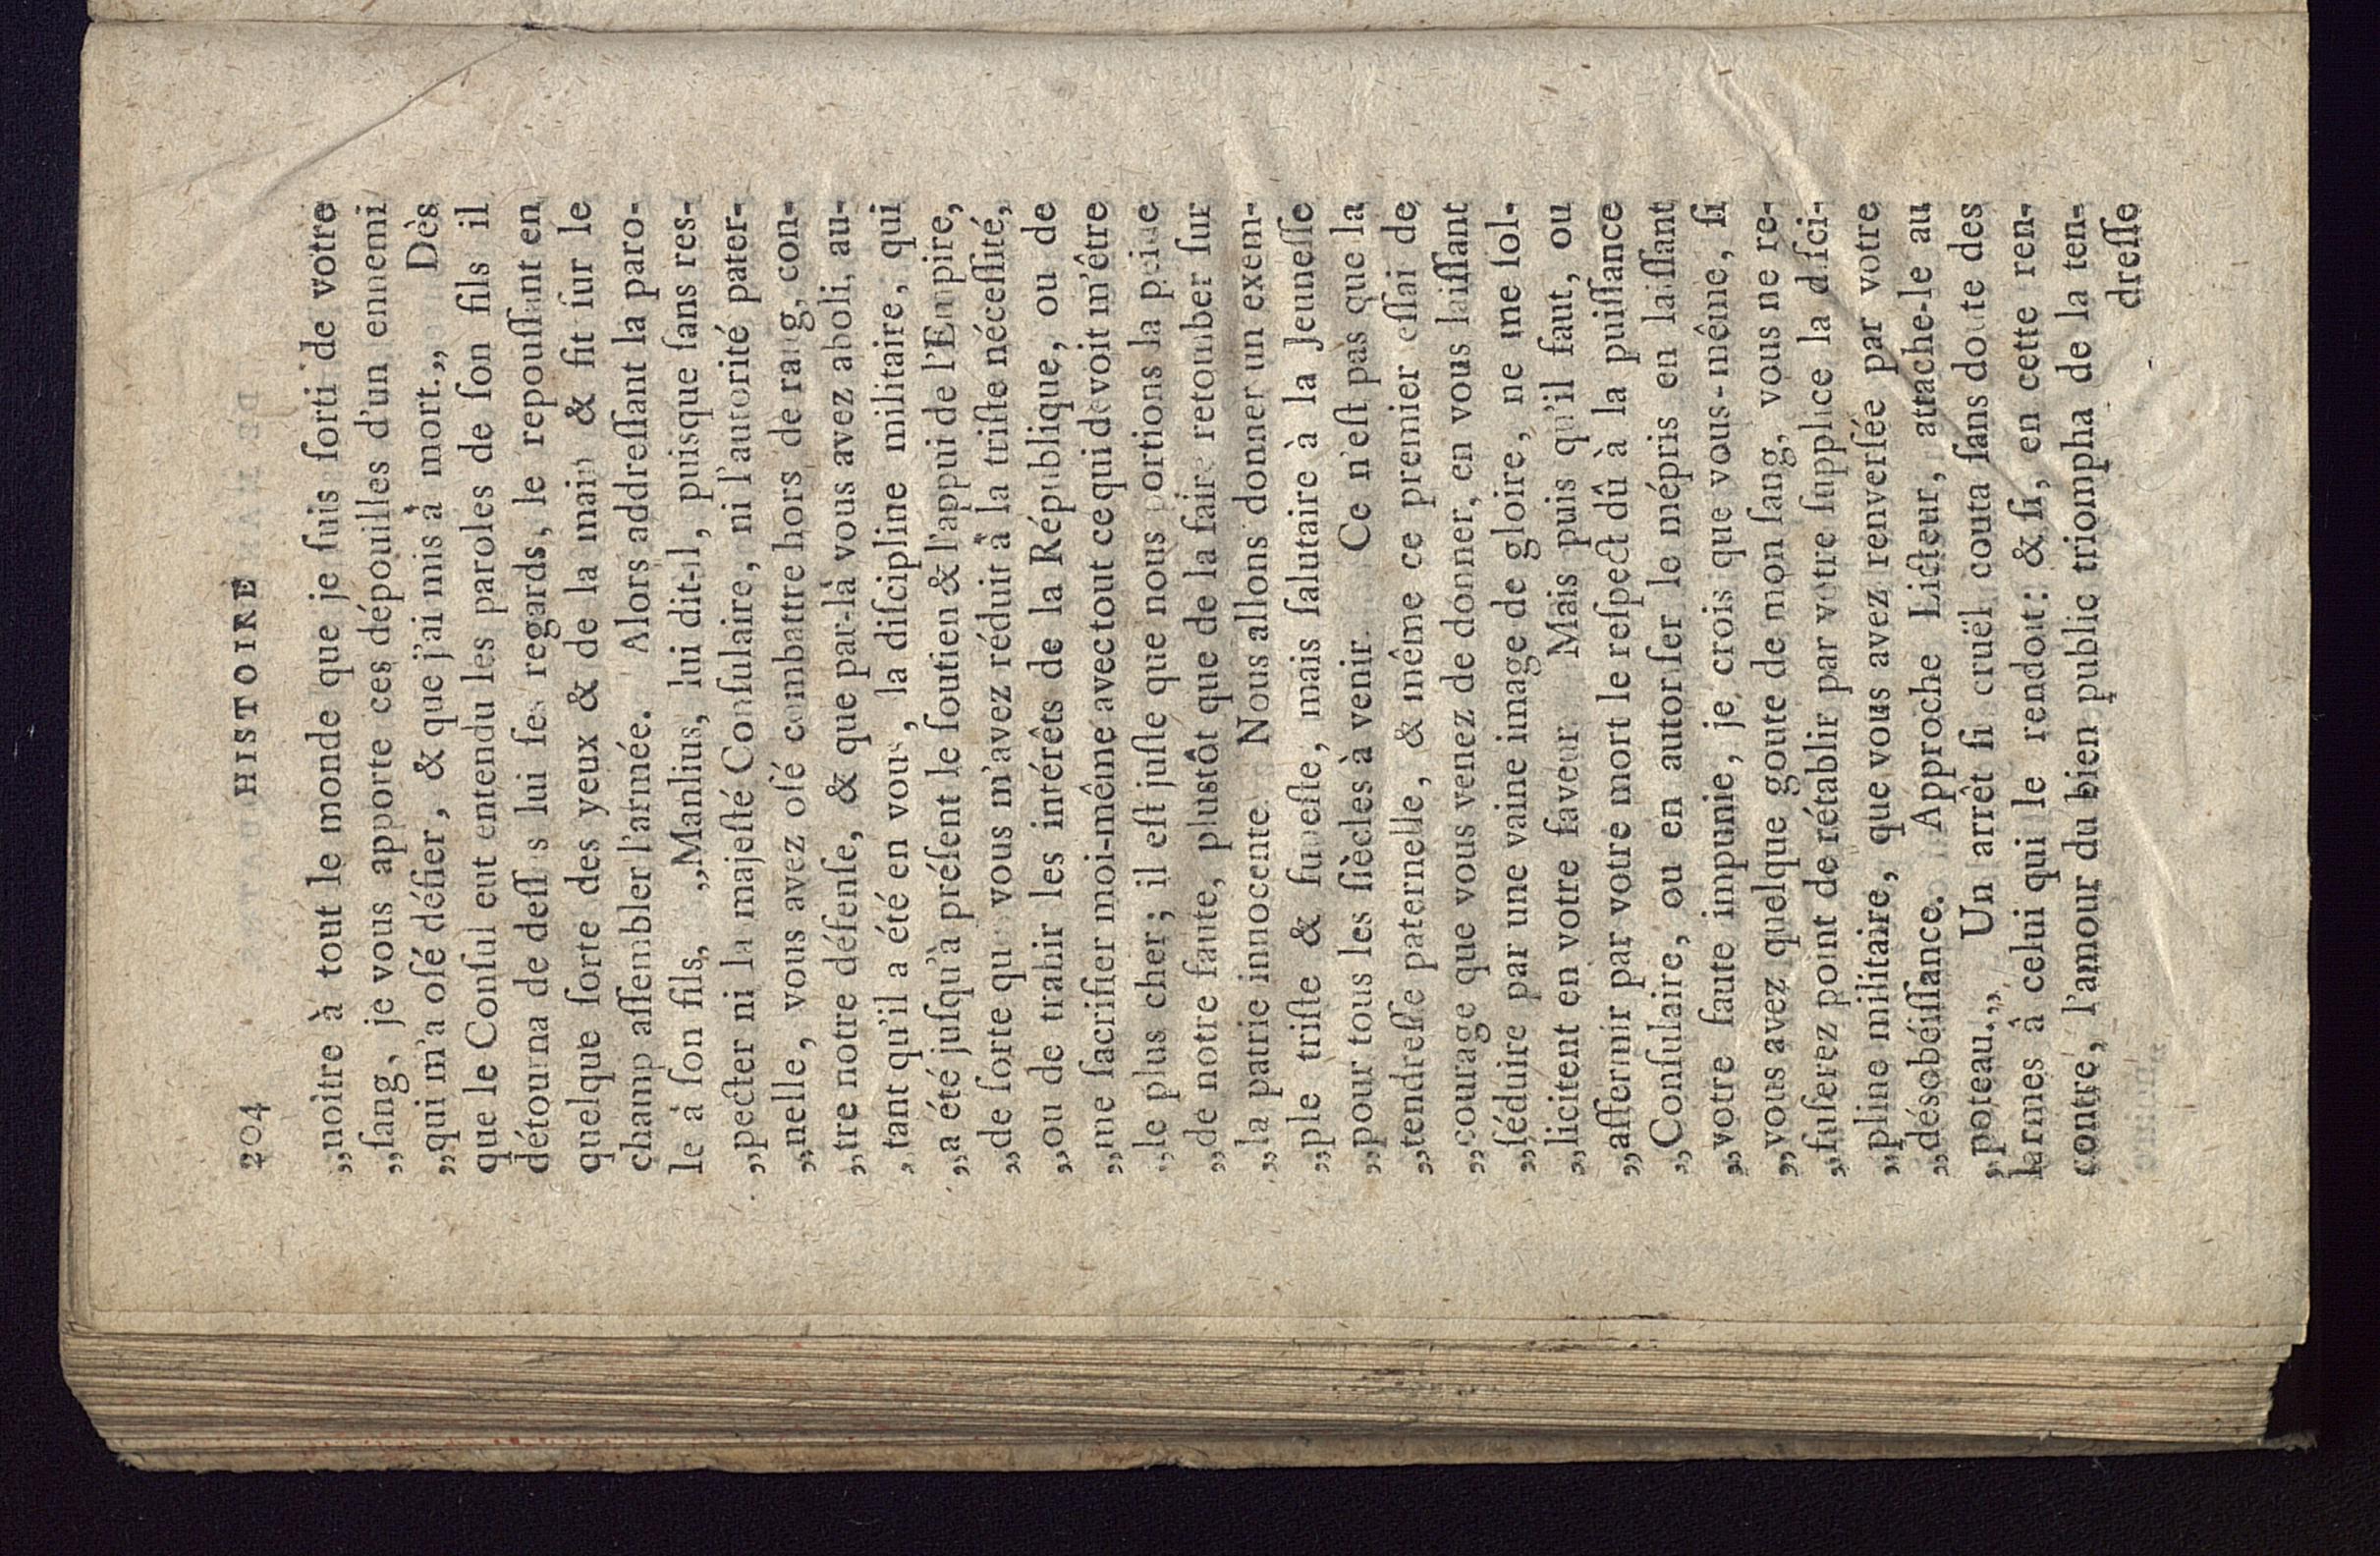 204 HISTOIRE
„noître à tout le monde que je ſuis ſorti de votre
„ſang, je vous apporte ces dépouilles d'un ennemi
„qui m'a oſé défier, & que j'ai mis à mort.„ Dès
que le Conſul eut entendu les paroles de ſon fils il
détourna de deſſus lui ſes regards, le repouſſant en
quelque ſorte des yeux & de la main & fit ſur le
champ aſſembler l'armée. Alors addreſſant la paro-
le à ſon fils, „Manlius, lui dit-il, puisque ſans res-
„pecter ni la majeſté Conſulaire, ni l'autorité pater-
„nelle, vous avez oſé combattre hors de rang, con-
„tre notre défenſe, & que par-là vous avez aboli, au-
„tant qu'il a été en vous, la diſcipline militaire, qui
„a été juſqu'à préſent le ſoutien & l'appui de l'Empire,
„de ſorte que vous m'avez réduit à la triſte néceſſité,
„ou de trahir les intérêts de la République, ou de
„me ſacrifier moi-même avec tout ce qui devoit m'être
„le plus cher; il eſt juſte que nous portions la peine
„de notre faute, plustôt que de la faire retomber ſur
„la patrie innocente. Nous allons donner un exem-
„ple triſte & funeſte, mais ſalutaire à la Jeuneſſe
„pour tous les ſiècles à venir. Ce n'eſt pas que la
„tendreſſe paternelle, & même ce premier eſſai de
„courage que vous venez de donner, en vous laiſſant
„ſéduire par une vaine image de gloire, ne me ſol-
„licitent en votre faveur. Mais puis qu'il faut, ou
„affermir par votre mort le reſpect dû à la puiſſance
„Conſulaire, ou en autoriſer le mépris en laiſſant
„votre faute impunie, je crois que vous-même, ſi
„vous avez quelque goute de mon ſang, vous ne re-
„fuſerez point de rétablir par votre ſupplice la diſci-
„pline militaire, que vous avez renverſée par votre
„désobéiſſance. Approche Licteur, attache-le au
„poteau.„ Un arrêt ſi cruël couta ſans doute des
larmes â celui qui le rendoit: & ſi, en cette ren-
contre, l'amour du bien public triompha de la ten-
dreſſe